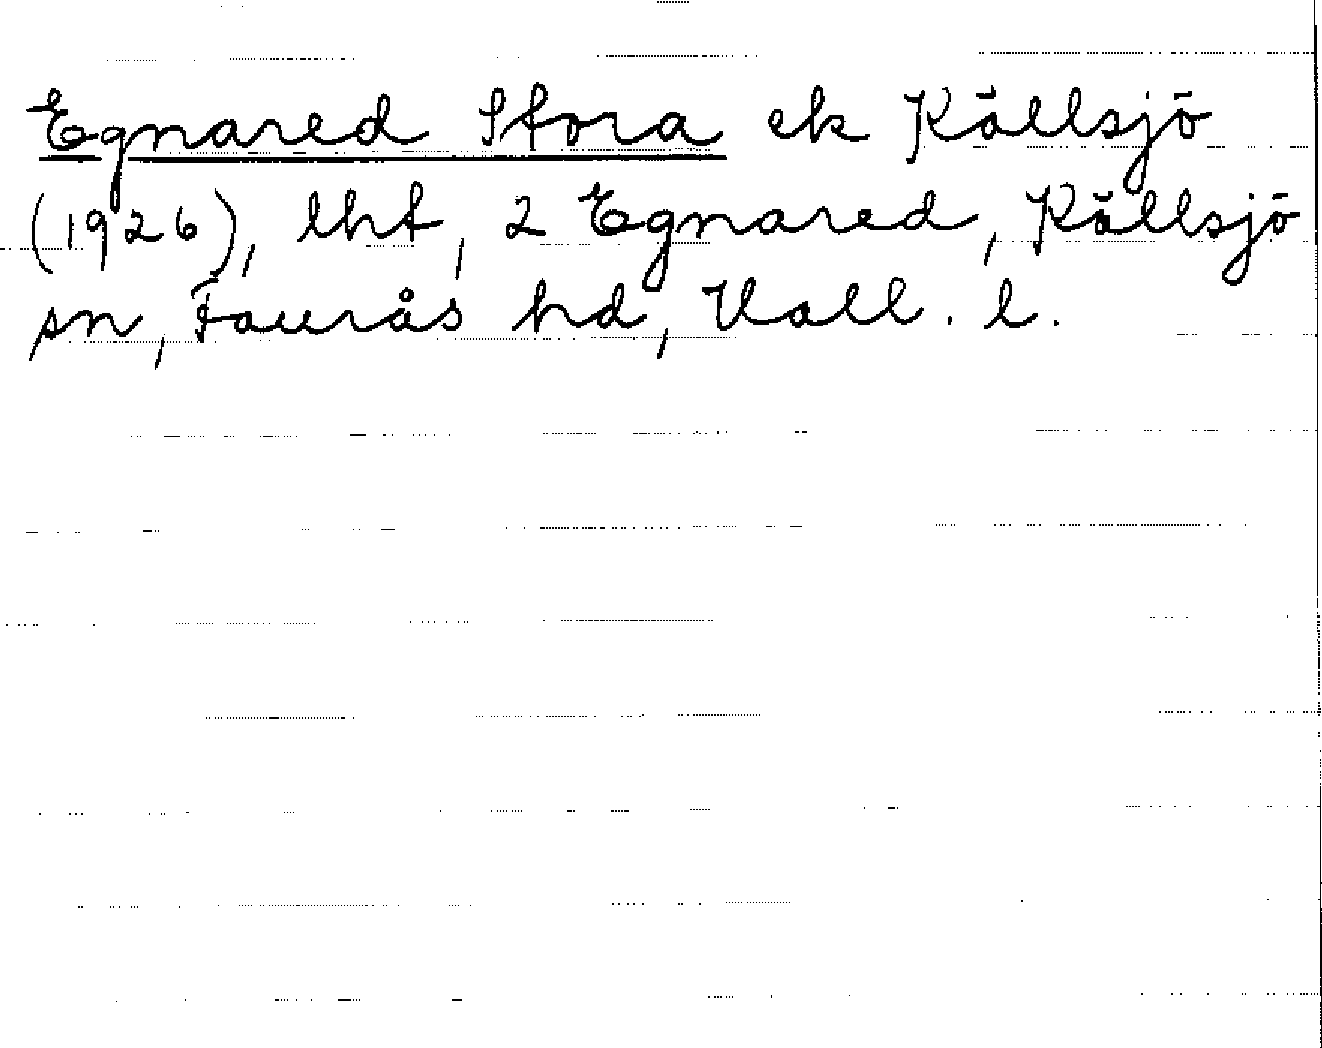 Egnared Stora ek Källsjö
(1926), lht, 2 Egnared, Källsjö
sn, Faurås hd, Hall. l.